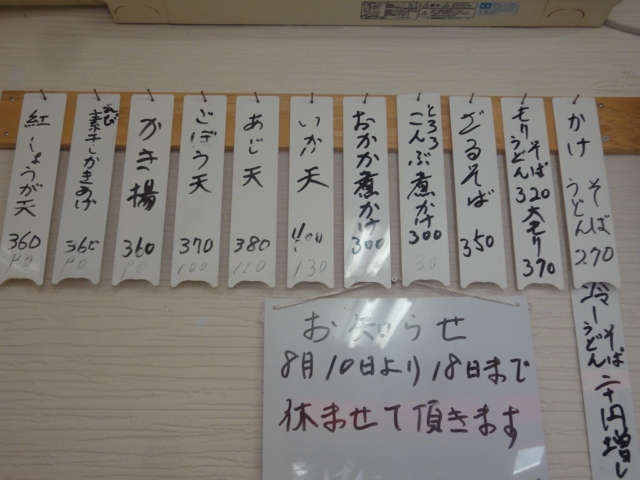 かけ そば うどん 270
冷し そば うどん 二十円増し
もり そば うどん 320 大もり 370
ざるそば 350
とろろ こんぶ煮かけ 300
30
おかか煮かけ 300
いか天 400
130
あじ天 380
110
ごぼう天 370
100
かき揚 360
90
えび 素干しかきあげ 360
90
紅しょうが天 360
90
お知らせ
8月10日より18日まで
休ませて頂きます